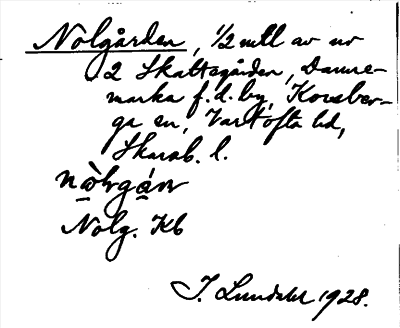 Nolgården, 1/2 mtl av nr
2 Skattegården, Danne-
marka f. d. by, Korsber-
ga sn, Vartofta hd,
Skarab. l.
Nolg. Kb
J. Lundahl 1928.